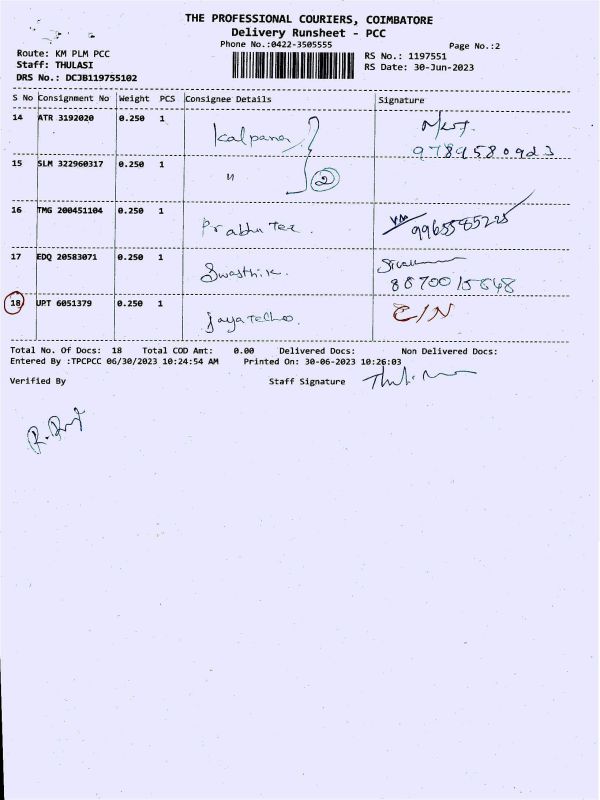 THE PROFESSIONAL COURIERS, COIMBATORE
Delivery Runsheet - PCC
Phone No.:0422-3505555
Page No.:2
Route: KM PLM PCC
Staff: THULASI
DRS No.: DCJB119755102
RS No.: 1197551
RS Date: 30-Jun-2023
S No Consignment No Weight PCS Consignee Details Signature
14 ATR 3192020 0.250 1 Kalpana
9789580923
15 SLM 322960317 0.250 1 " 2
16 TMG 200451104 0.250 1 Prabhu Tex. 9965585225
17 EDQ 20583071 0.250 1 Swasthik.
8870015648
18 UPT 6051379 0.250 1 C/N
Total No. Of Docs: 18 Total COD Amt: 0.00 Delivered Docs: Non Delivered Docs:
Entered By :TPCPCC 06/30/2023 10:24:54 AM Printed On: 30-06-2023 10:26:03
Verified By Staff Signature